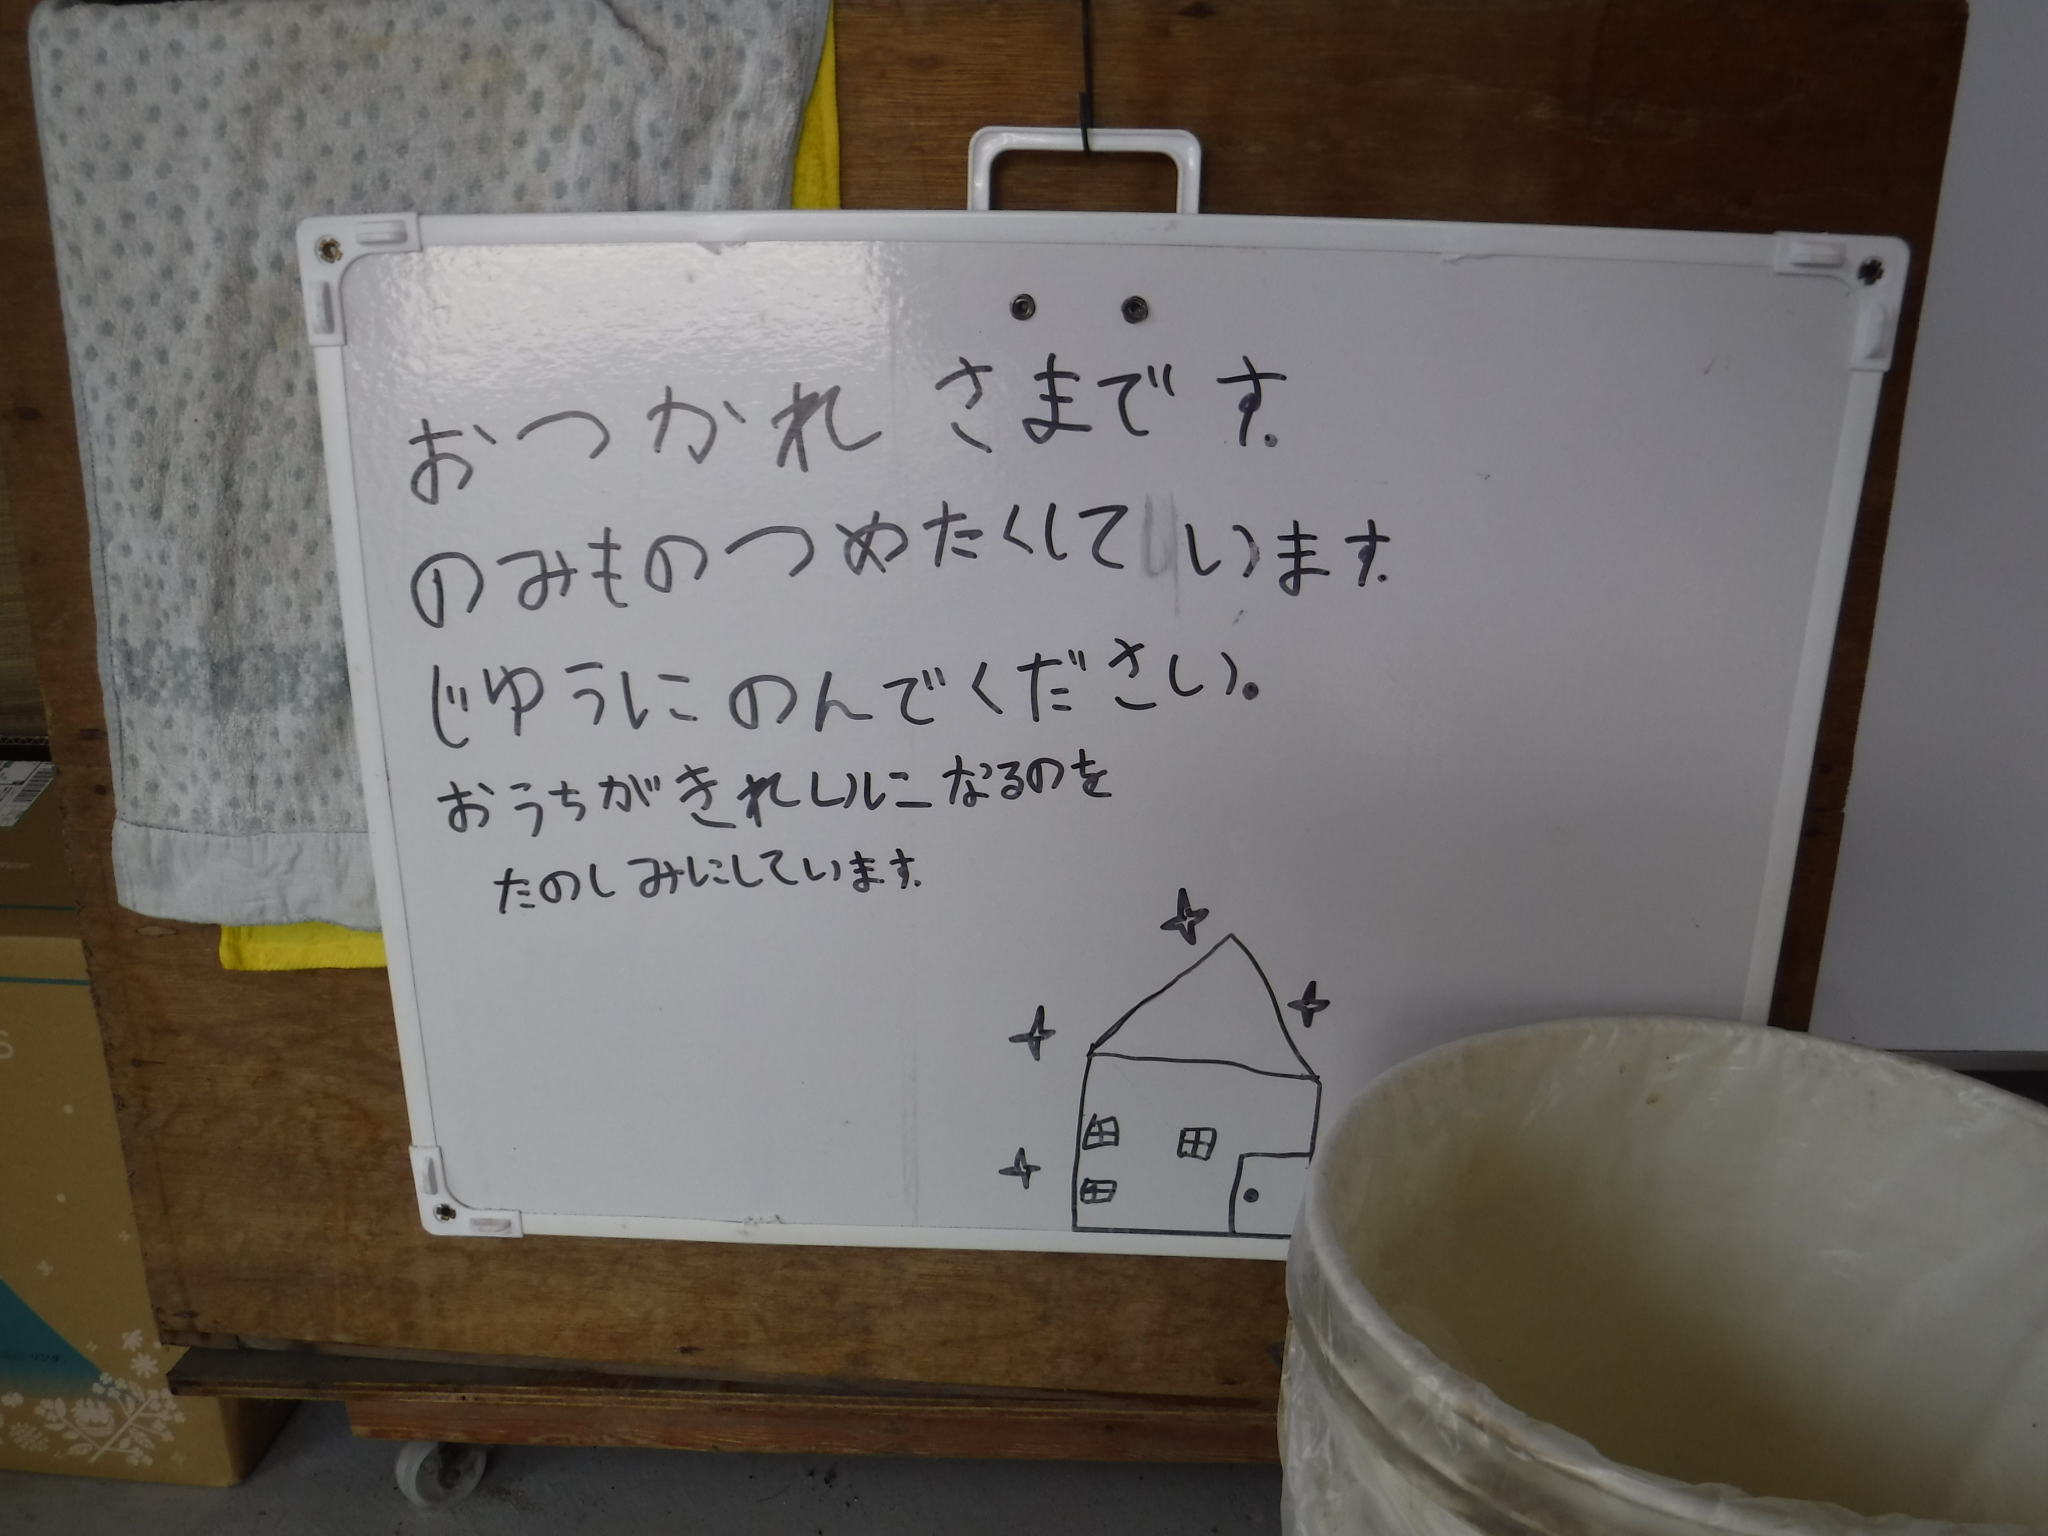 おつかれさまです.
のみものつめたくしています.
じゆうにのんでください。
おうちがきれいになるのを
たのしみにしています.